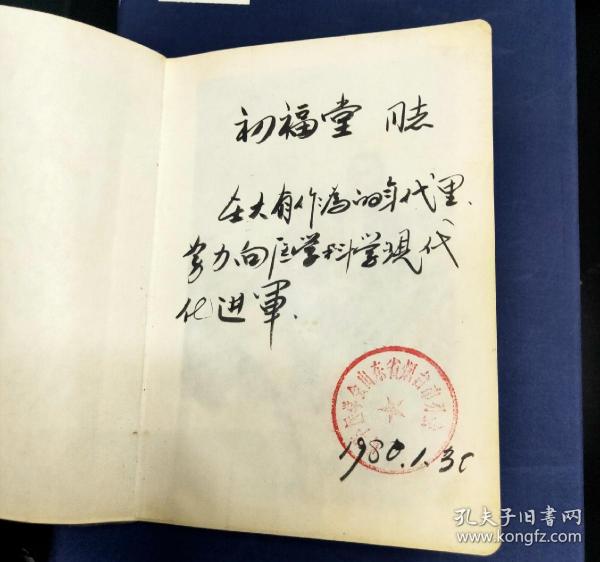 初福堂 同志
在大有作为的年代里、
努力向医学科学現代
化进軍、
1980.1.30
孔夫子旧书网
www.kongfz.com